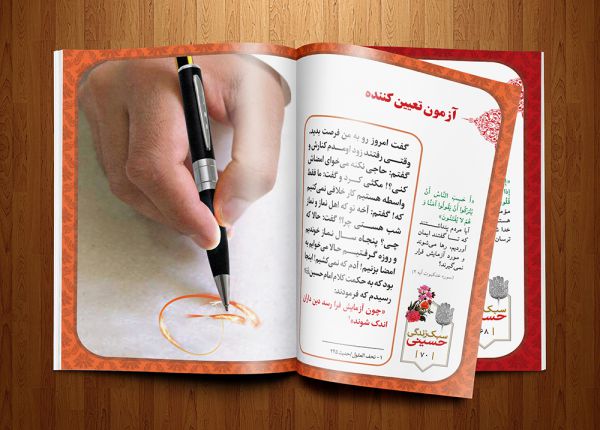 آزمون تعیین کننده
گفت امروز رو به من فرصت بدید.
وقتی رفتند زود اومدم کنارش و
گفتم: حاجی نکنه می‌خوای امضاش
کنی؟! مکثی کرد و گفت: ما فقط
واسطه هستیم کار خلافی نمی‌کنیم
که! گفتم: آخه تو که اهل نماز و نماز
شب هستی چرا؟! گفت: حالا که
چی؟ پنجاه سال نماز خوندیم
و روزه گرفتیم حالا می‌خوایم یه
امضا بزنیم! آدم که نمی‌کشیم! اینجا
بود که به حکمت کلام امام حسین
رسیدم که فرمودند:
«چون آزمایش فرا رسد دین داران
اندک شوند»¹
۱- تحف العقول/حدیث ۲۴۵
«أَ حَسِبَ النَّاسُ أَنْ
يُتْرَكُوا أَنْ يَقُولُوا آمَنَّا وَ
هُمْ لا يُفْتَنُونَ»
آیا مردم پنداشتند
که تا گفتند ایمان
آوردیم، رها می‌شوند
و مورد آزمایش قرار
نمی‌گیرند؟
(سوره عنکبوت آیه ۲)
سبک زندگی
حسینی
۷۰
۶۸